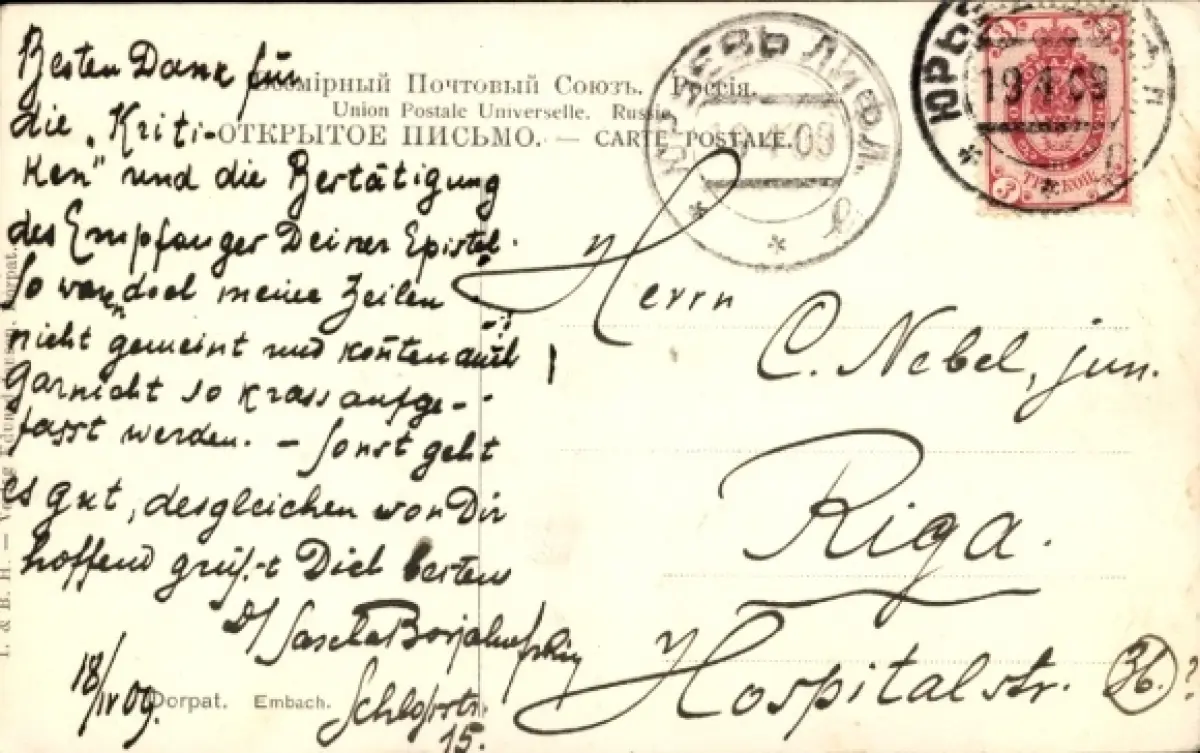 Besten Dank für
die „Kriti-
ken" und die Bertätigung
des Empfanger Deiner Epistel.
So waren doch meine Zeilen
nicht gemeint und konten auch
garnicht so krass aufge-
fasst werden. – Sonst geht
es gut, desgleichen von Dir
hoffend grüsst Dich bestens
D/ Sascha
Schlossstr.
15.
18/IV 09.
Всемірный Почтовый Союзъ. Россія.
Union Postale Universelle. Russie.
ОТКРЫТОЕ ПИСЬМО. — CARTE POSTALE.
ЛИФЛ.
19 4 09
ЮРЬ
19 4 09
3 3
ТРИ КОП.
Herrn
C. Nebel, jun.
Riga.
Hospitalstr. 36. ?
Dorpat. Embach.
I. & B. H. —